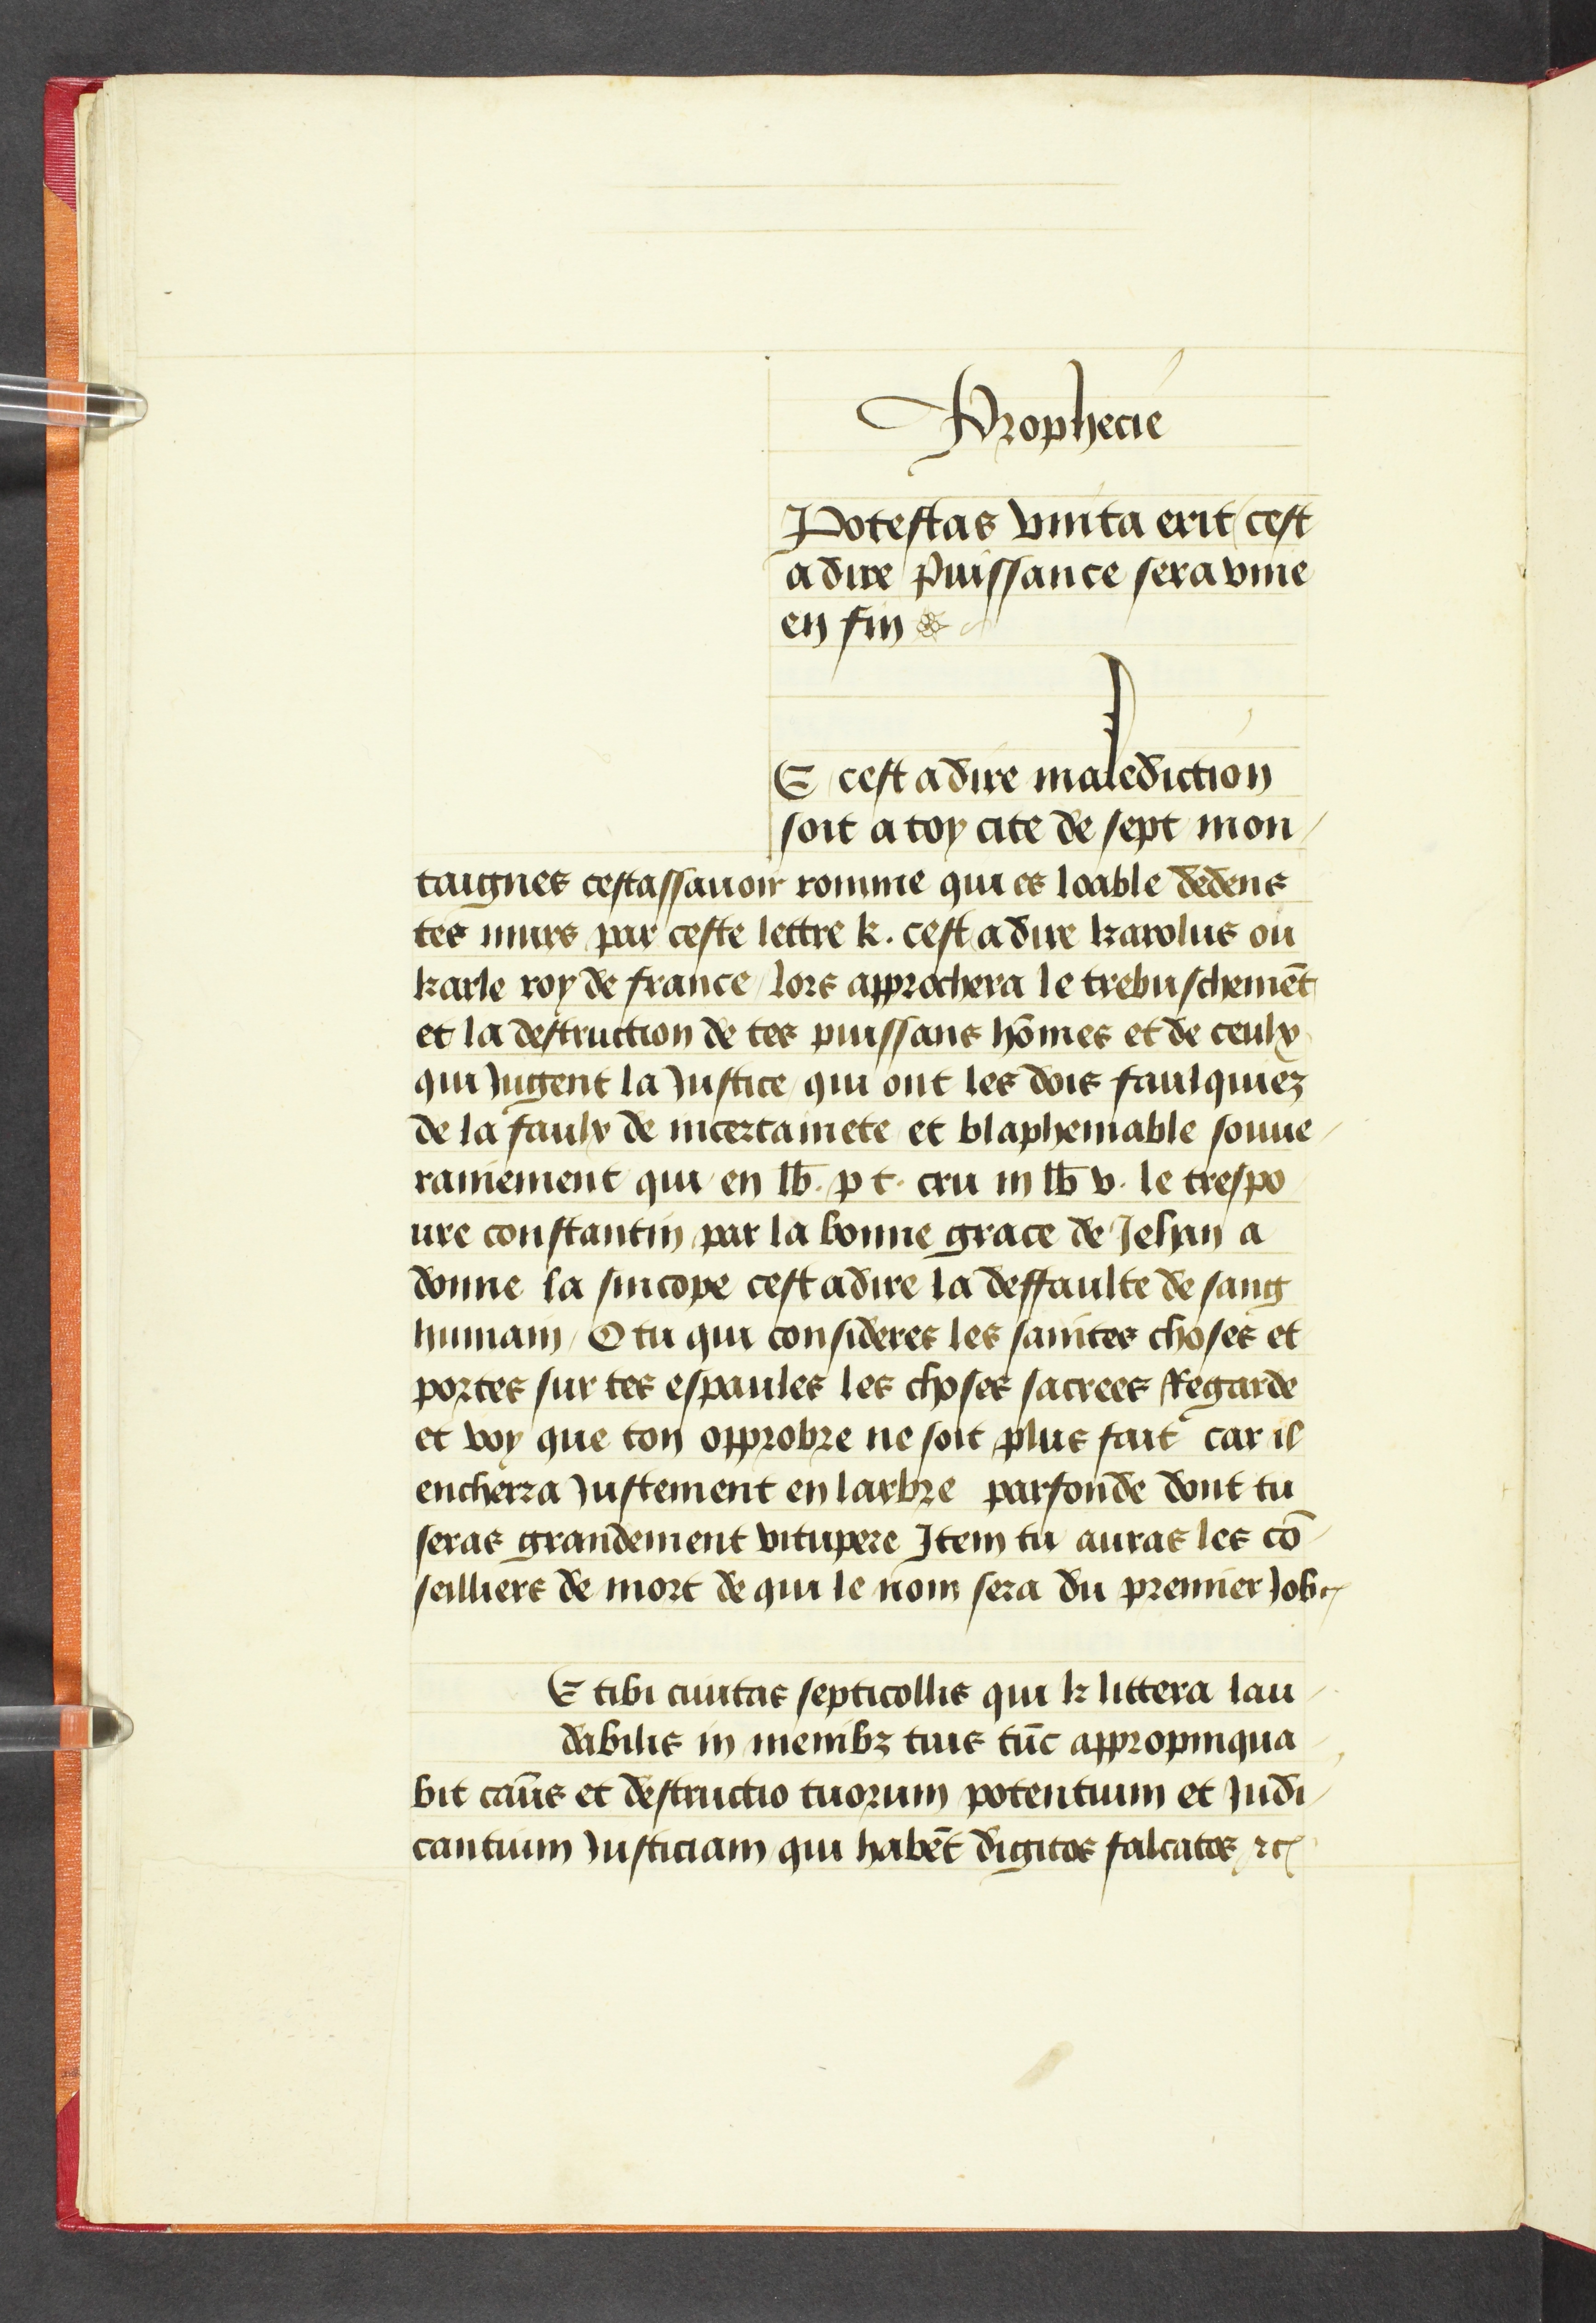 Prophecie
Potestas vnita erit / cest
a dire Puissance sera vnie
en fin
E / cest a dire malediction
soit a toy cite de sept mon /
taignes cestassauoir romme qui es loable dedens
tes murs par ceste lettre k. cest a dire karolus ou
karle roy de france / lors approchera le trebuschemēt
et la destruction de tes puissans hōmes et de ceulx
qui Jugent la Justice / qui ont les dois faulquiez
de la faulx de incertainete et blaphemable souue /
rainement qui en lb̄. p t. cru in lb̄ v. le trespo
ure constantin par la bonne grace de Jehan a
donne la sincope cest a dire la deffaulte de sang
humain / O tu qui consideres les saintes choses et
portes sur tes espaules les choses sacrees Regarde
et voy que ton opprobre ne soit plus fait car il
encherra Justement en larbre parfonde dont tu
seras grandement vitupere Item tu auras les cō /
seilliers de mort de qui le nom sera du premier Job
E tibi ciuitas septicollis qui k littera lau /
dabilis in menibꝫ tuis tūc appropinqua /
bit cāūs et destructio tuorum potentium et Judi /
cantium Justiciam qui habēt digitos falcatos ꝛc